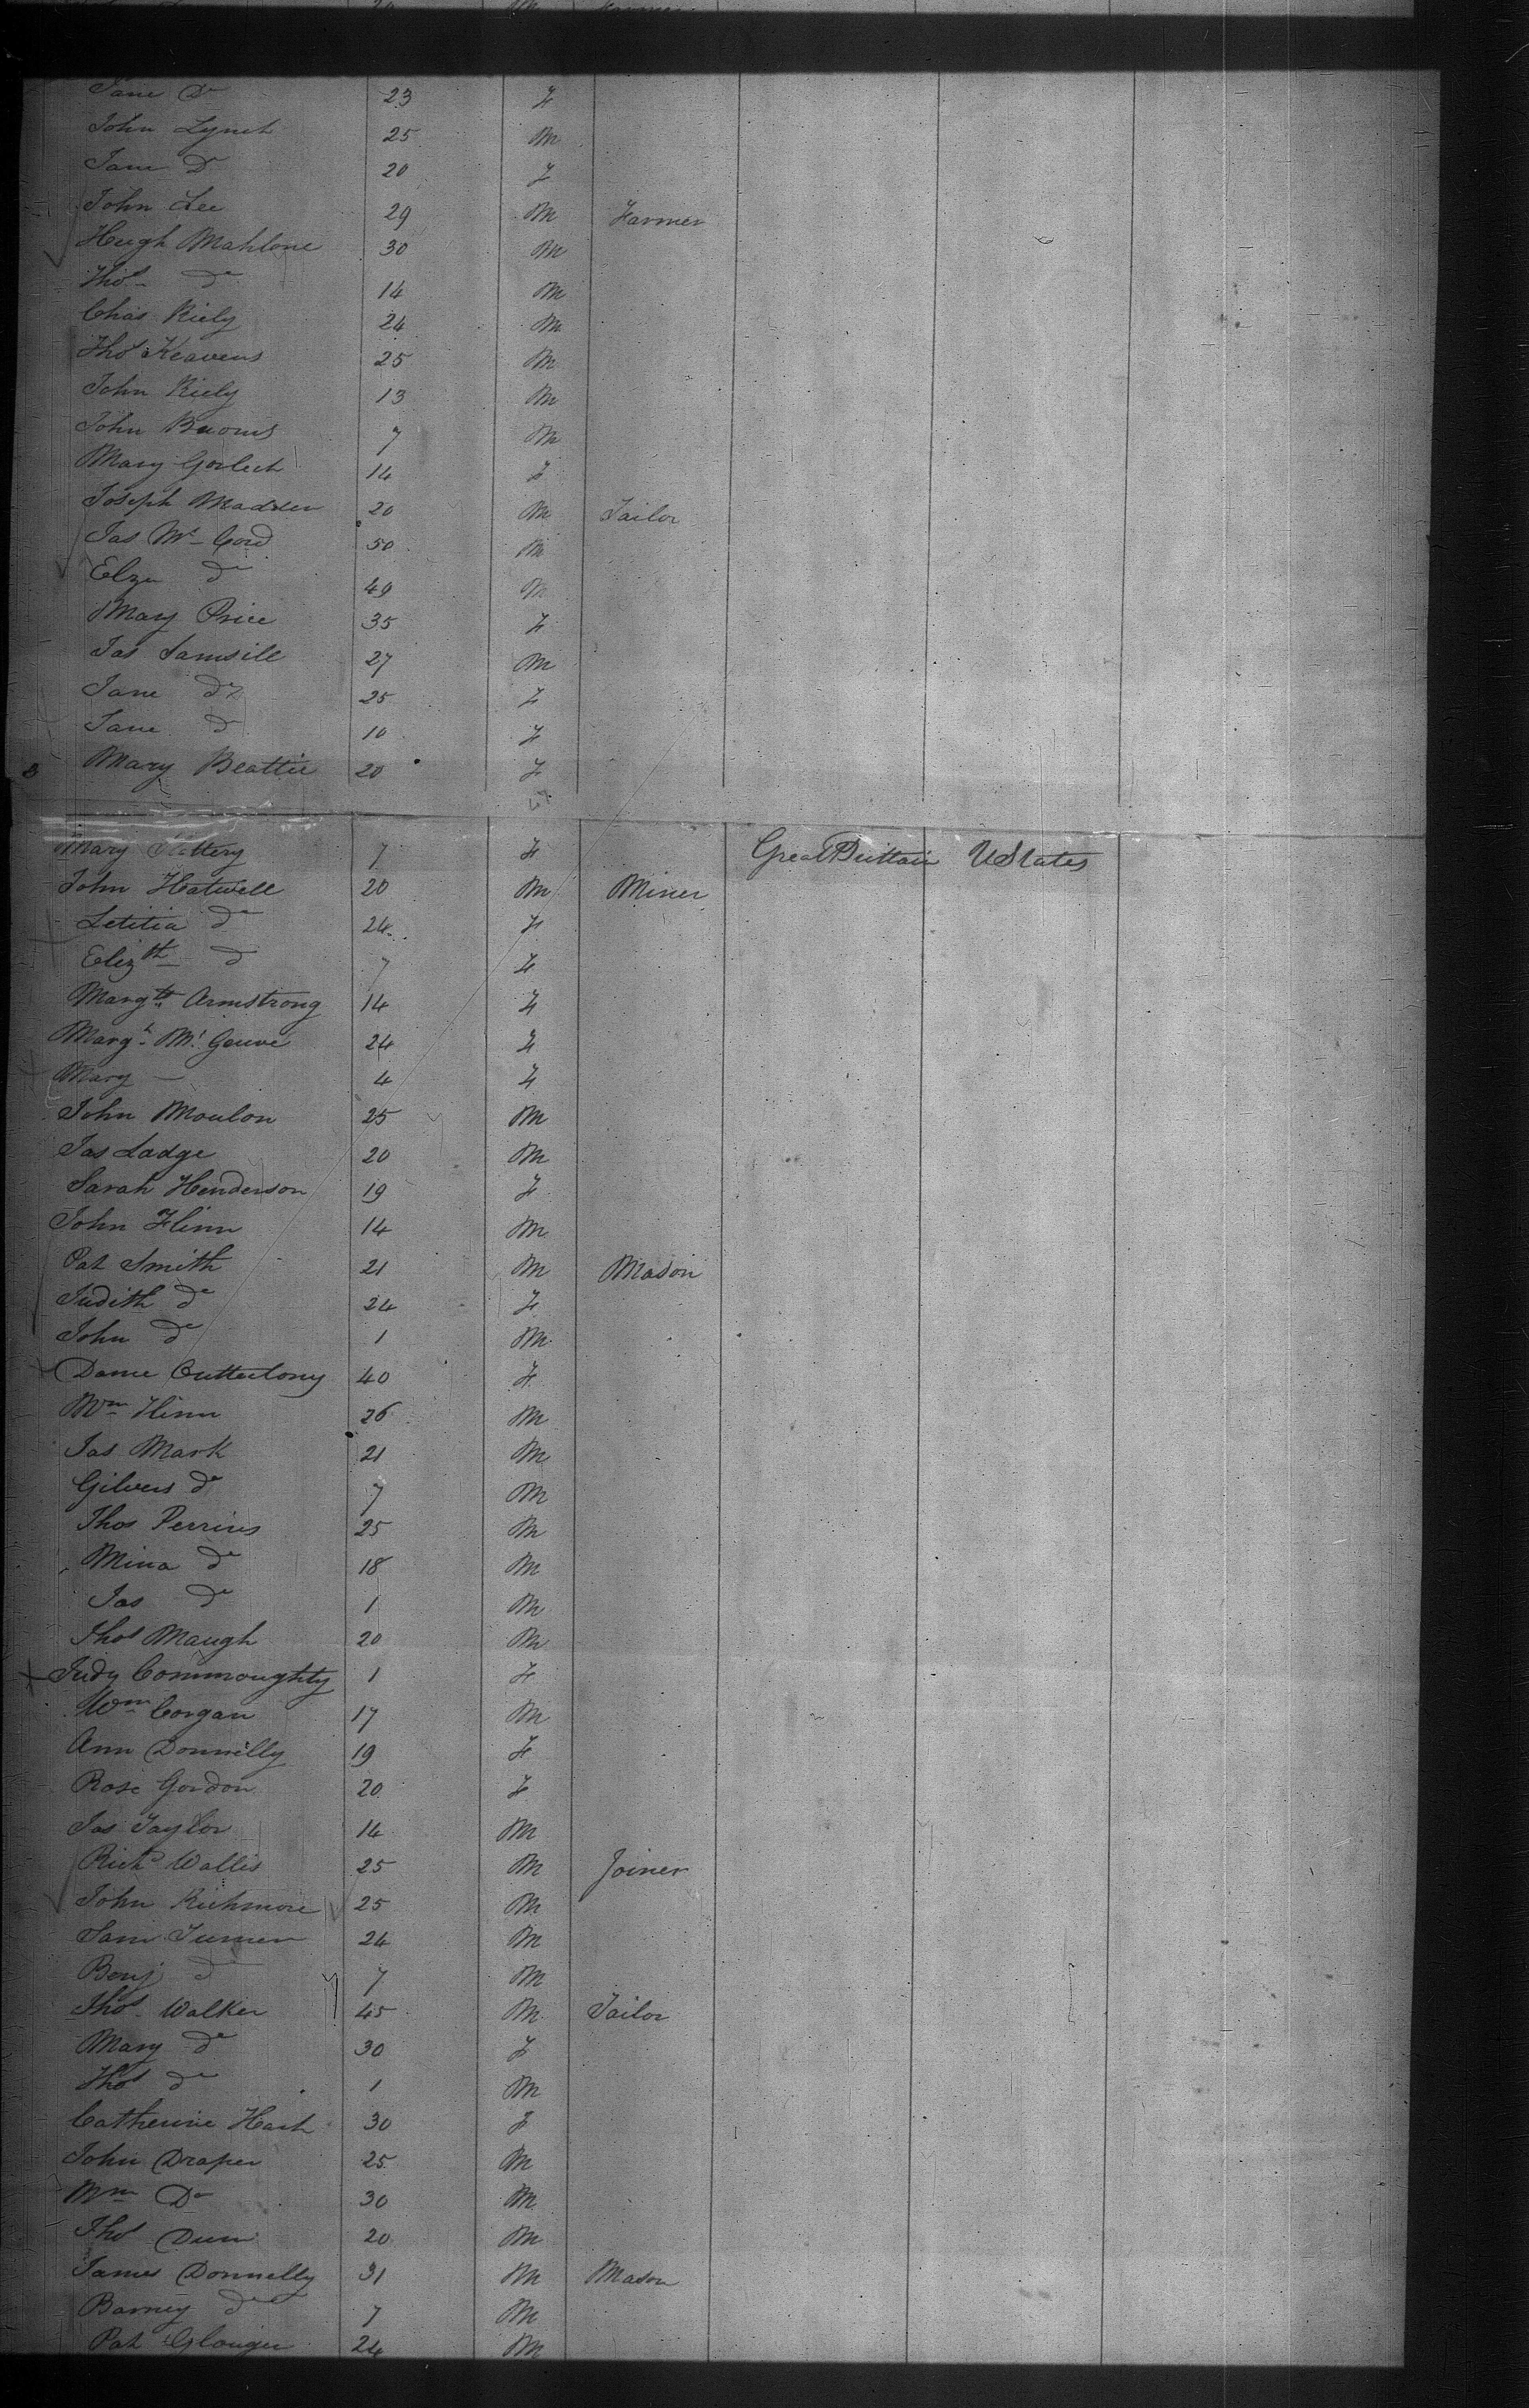 Jane Do 23 F
John Lynch 25 M
Jane Do 20 F
John Lee 29 M Farmer
Hugh Mahlone 30 M
Thos do 14 M
Chas Riely 24 M
Thos Keavens 25 M
John Riely 13 M
John 7 M
Mary 14 F
Joseph Madden 20 M Tailor
Jas Mc Cord 50 M
Elza do 49 M
Mary Price 35 F
Jas Samsill 27 M
Jane do 25 F
Jane do 10 F
Mary Beattie 20 F
Mary 7 F Great Brittain U States
John Hatwell 20 M Miner
Letitia do 24 F
Elizth do 7 F
Margt Armstrong 14 F
Margt Mc 24 F
Mary — 4 F
John Moulon 25 M
Jas Ladge 20 M
Sarah Henderson 19 F
John Flinn 14 M
Pat Smith 21 M Mason
Judith do 24 F
John do 1 M
40 F
Wm Flinn 26 M
Jas Mark 21 M
do 7 M
Thos Perrins 25 M
Mina do 18 M
Jas do 1 M
Thos Maugh 20 M
Judy Commoughty 1 F
Wm Corgan 17 M
Ann Donnilly 19 F
Rose Gordon 20 F
Jas Taylor 14 M
Richd Wallis 25 M Joiner
John Richmore 25 M
Sam Turner 24 M
Benj do 7 M
Thos Walker 45 M Tailor
Mary do 30 F
Thos do 1 M
Catherine 30 F
John Draper 25 M
Wm Do 30 M
Thos 20 M
James Donnelly 31 M Mason
Barney do 7 M
Pat 24 M